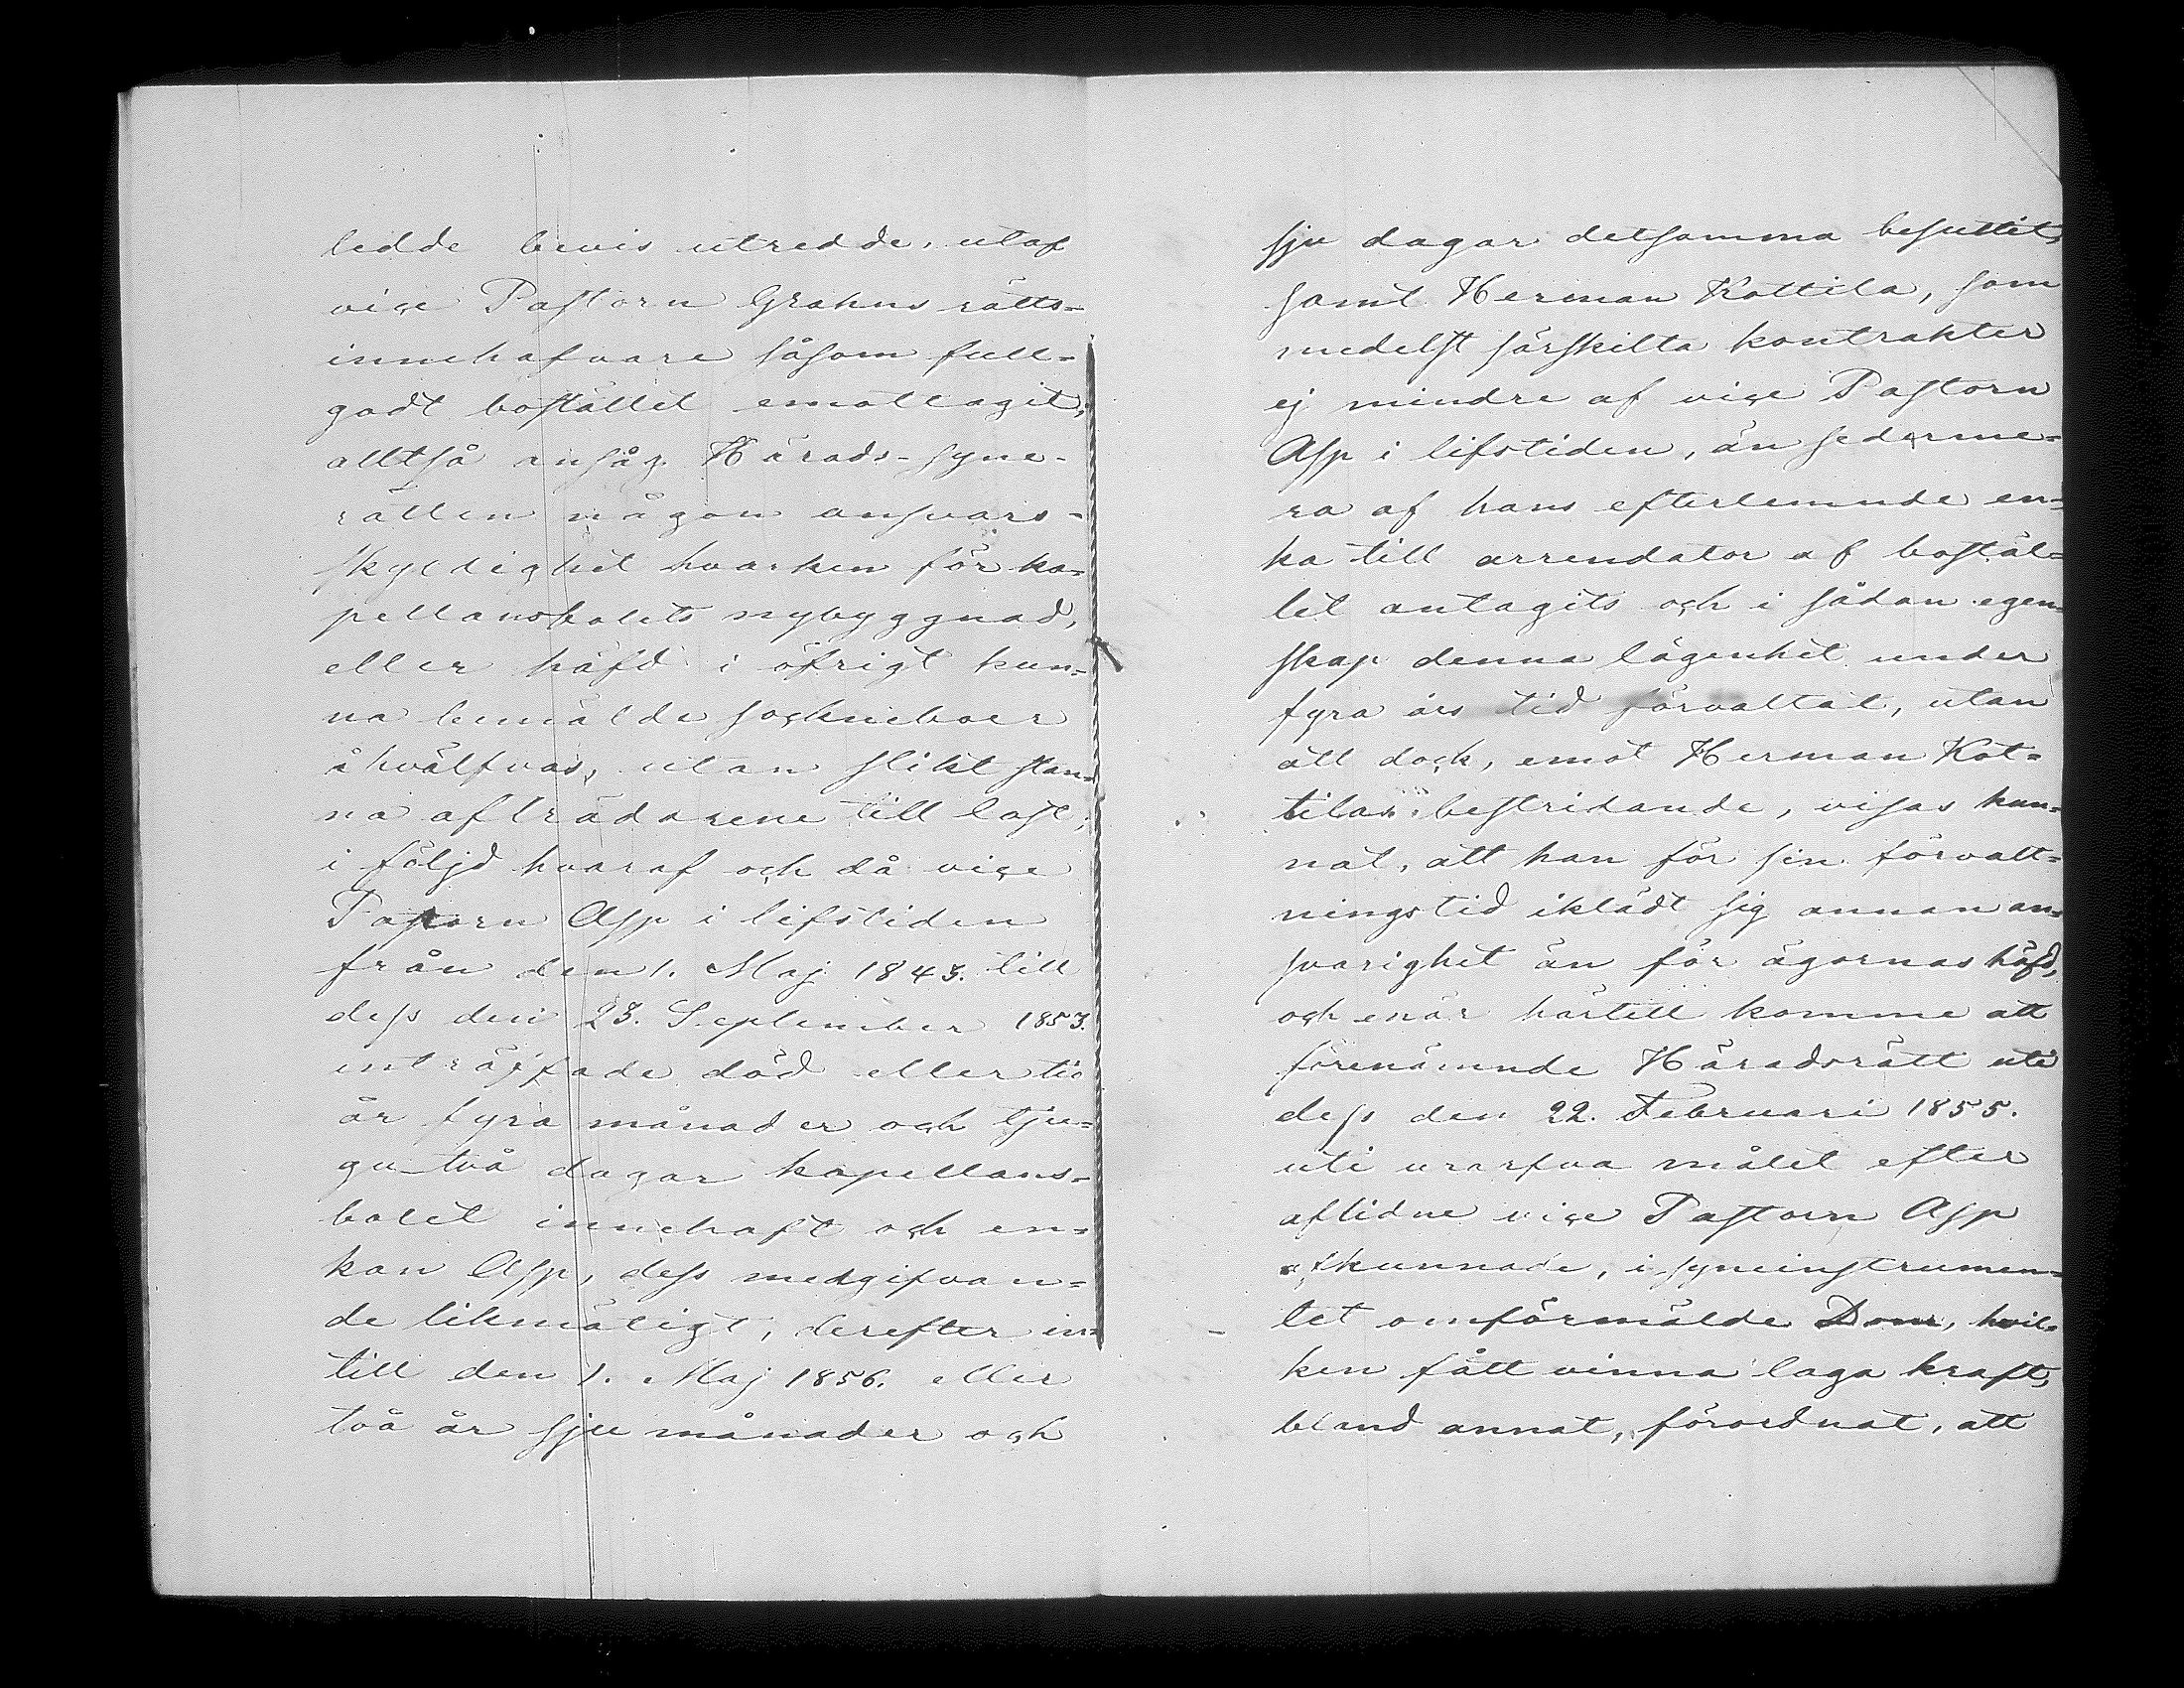 ledde bevis utredde, utaf
vice Pastorn Grahns rätts-
innehafvare såsom full-
godt bostället emottagit,
alltså ansåg Härads-syne-
rätten någon ansvars-
skyldighet hvarken för ka-
pellansbolets nybyggnad,
eller häfd i öfrigt kun-
na bemälde sockneboer
åhvälfvas, utan slikt stan-
na afträdarene till last;
i följd hvaraf och då vice
Pastorn Asp i lifstiden
från den 1. Maj 1843. till
dess den 23. September 1853.
inträffade död eller tio
år fyra månader och tju-
gu två dagar kapellans-
bolet innehaft och en-
kan Asp, dess medgifvan-
de likmätigt, derefter in-
till den 1. Maj 1856. eller
två år sju månader och
sju dagar detsamma besuttit,
samt Herman Kottila, som
medelst särskilta kontrakter
ej mindre af vice Pastorn
Asp i lifstiden, än sederme-
ra af hans efterlemnde en-
ka till arrendator af bostäl-
let antagits och i sådan egen-
skap denna lägenhet under
fyra års tid förvaltat, utan
att dock, emot Herman Kot-
tilas bestridande, visas kun-
nat, att han för sin förvalt-
ningstid iklädt sig annan an-
svarighet än för ägornas häfd,
och enär härtill komme att
förenämnde Häradsrätt uti
dess den 22. Februari 1855.
uti urarfva målet efter
aflidne vice Pastorn Asp
afkunnade, i syneinstrumen-
tet omförmälde Dom, hvil-
ken fått vinna laga kraft,
bland annat, förordnat, att